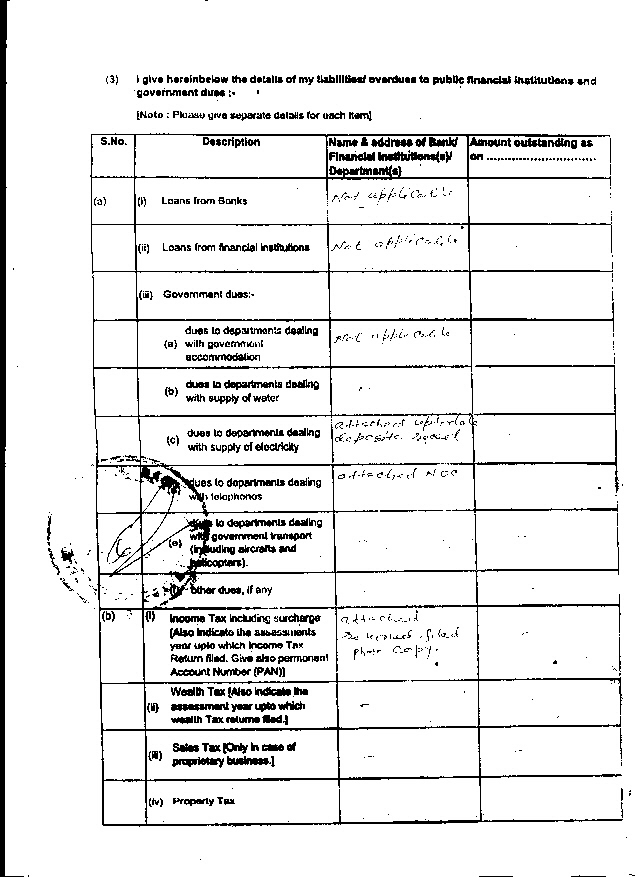 (3) I give hereinbelow the details of my liabilities/ overdues to public financial institutions and
government dues :-
[Note : Please give separate details for each item]
S.No. Description Name & address of Bank/ Amount outstanding as
Financial Institutions(s)/ on ..............................
Department(s)
(a) (i) Loans from Banks Not applicable
(ii) Loans from financial institutions Not applicable
(iii) Government dues:-
dues to departments dealing
(a) with government Not applicable
accommodation
(b) dues to departments dealing
with supply of water
attached
(c) dues to departments dealing deposite
with supply of electricity
dues to departments dealing attached NOC
with telephones
dues to departments dealing
(e) with government transport
(including aircrafts and
helicopters).
(f) other dues, if any
(b) (i) Income Tax including surcharge attached
[Also indicate the assessments filed
year upto which Income Tax copy.
Return filed. Give also permanent
Account Number (PAN)]
Wealth Tax [Also indicate the
(ii) assessment year upto which
wealth Tax returns filed.]
(iii) Sales Tax [Only in case of
proprietary business.]
(iv) Property Tax